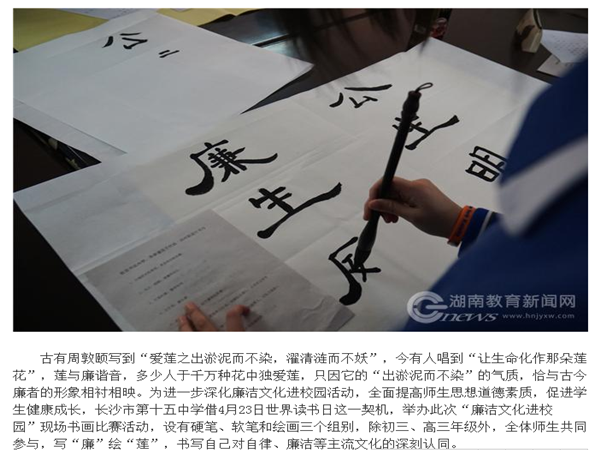 公
公生明
廉生
湖南教育新闻网
Gnews www.hnjyxw.com
古有周敦颐写到“爱莲之出淤泥而不染，濯清涟而不妖”，今有人唱到“让生命化作那朵莲
花”，莲与廉谐音，多少人于千万种花中独爱莲，只因它的“出淤泥而不染”的气质，恰与古今
廉者的形象相衬相映。为进一步深化廉洁文化进校园活动，全面提高师生思想道德素质，促进学
生健康成长，长沙市第十五中学借4月23日世界读书日这一契机，举办此次“廉洁文化进校
园”现场书画比赛活动，设有硬笔、软笔和绘画三个组别，除初三、高三年级外，全体师生共同
参与，写“廉”绘“莲”，书写自己对自律、廉洁等主流文化的深刻认同。